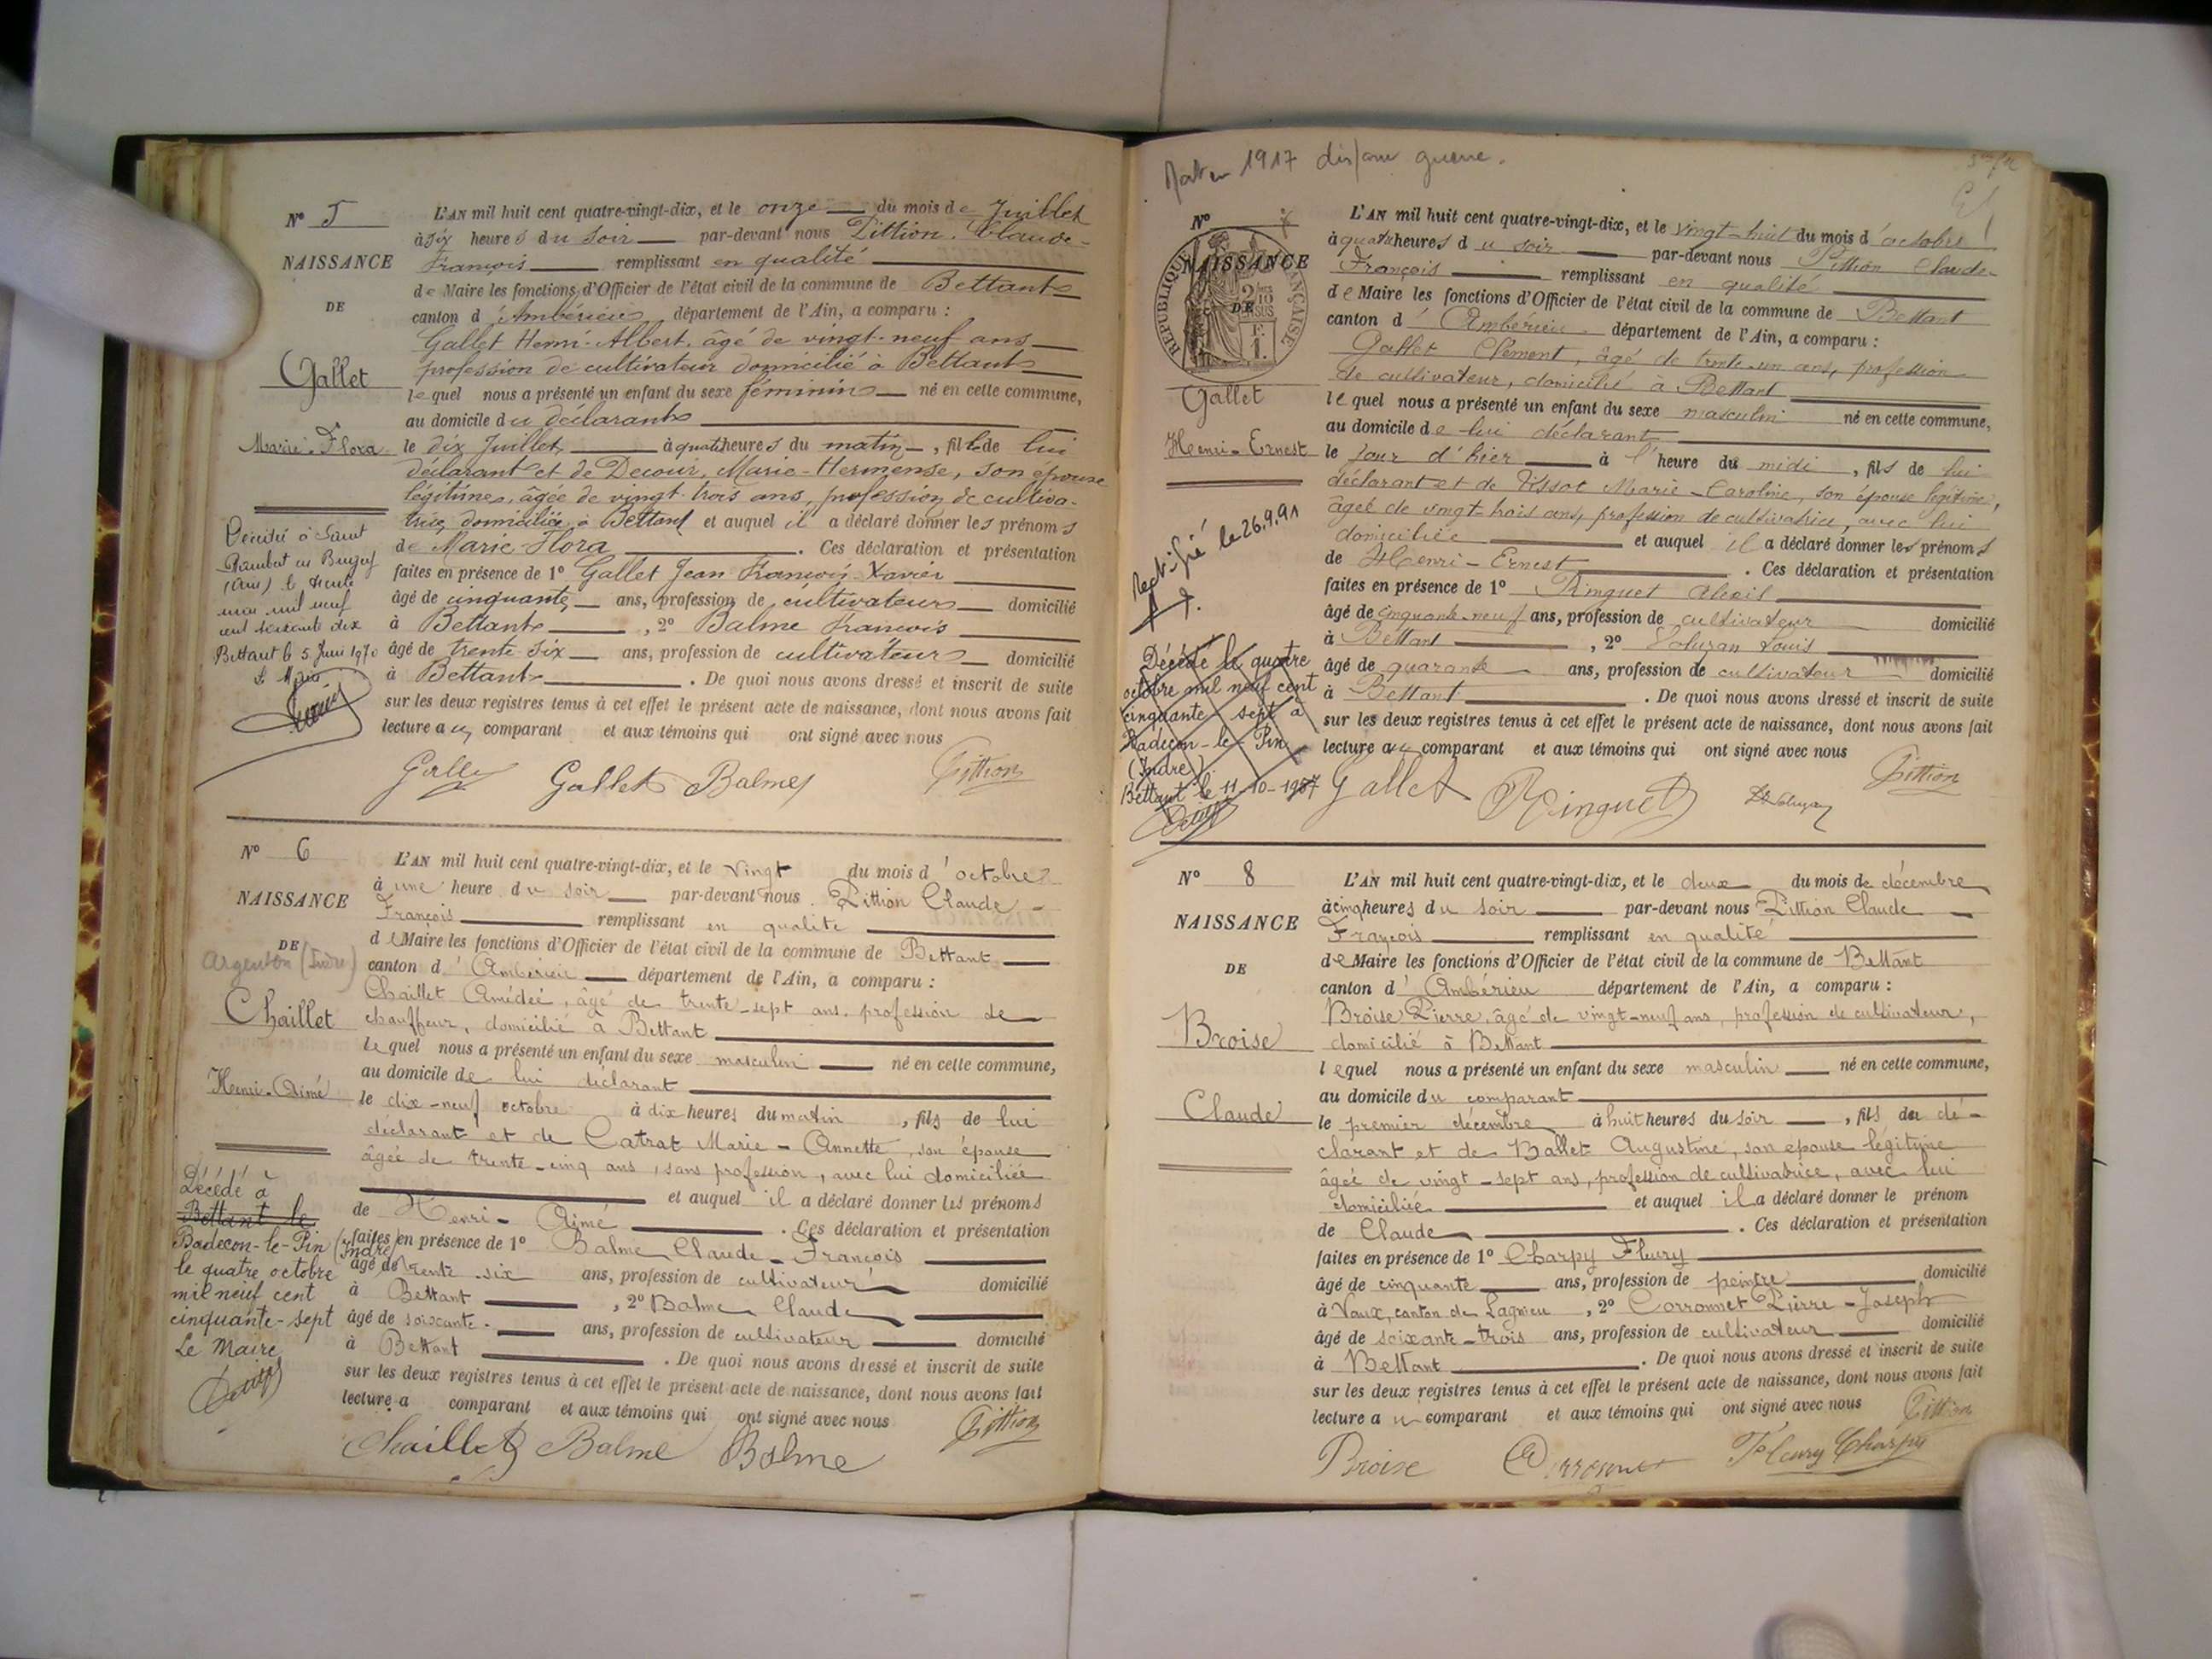 N° 5
NAISSANCE
DE
Gallet
Marie-Flora
Décédée à Saint
Rambert en Bugey
(Ain) le trente
mai mil neuf
cent soixante dix
Bettant le 5 Juin 1970
Le Maire
L'AN mil huit cent quatre-vingt-dix, et le onze du mois de Juillet
à six heures du soir par-devant nous Pittion Claude-
François remplissant en qualité
de Maire les fonctions d'Officier de l'état civil de la commune de Bettant
canton d'Ambérieu département de l'Ain, a comparu :
Gallet Henri-Albert, âgé de vingt-neuf ans
profession de cultivateur domicilié à Bettant
lequel nous a présenté un enfant du sexe féminin né en cette commune,
au domicile du déclarant
le dix Juillet, à quatre heures du matin, fille de lui
déclarant et de Decour, Marie-Hermense, son épouse
légitime, âgée de vingt-trois ans, profession de cultiva-
trice, domiciliée à Bettant et auquel il a déclaré donner les prénoms
de Marie-Flora. Ces déclaration et présentation
faites en présence de 1° Gallet Jean François-Xavier
âgé de cinquante ans, profession de cultivateur domicilié
à Bettant, 2° Balme François
âgé de trente six ans, profession de cultivateur domicilié
à Bettant. De quoi nous avons dressé et inscrit de suite
sur les deux registres tenus à cet effet le présent acte de naissance, dont nous avons fait
lecture au comparant et aux témoins qui ont signé avec nous
Gallet Gallet Balme Pittion
N° 6
NAISSANCE
DE
Argenton (Indre)
Chaillet
Henri-Aimé
Décédé à
Bettant le
Badecon-le-Pin (Indre)
le quatre octobre
mil neuf cent
cinquante-sept
Le Maire
L'AN mil huit cent quatre-vingt-dix, et le vingt du mois d'octobre
à une heure du soir par-devant nous Pittion Claude-
François remplissant en qualité
de Maire les fonctions d'Officier de l'état civil de la commune de Bettant
canton d'Ambérieu département de l'Ain, a comparu :
Chaillet Amédée, âgé de trente-sept ans, profession de
chauffeur, domicilié à Bettant
lequel nous a présenté un enfant du sexe masculin né en cette commune,
au domicile de lui déclarant
le dix-neuf octobre à dix heures du matin, fils de lui
déclarant et de Catrat Marie-Annette, son épouse
âgée de trente-cinq ans, sans profession, avec lui domiciliée
et auquel il a déclaré donner les prénoms
de Henri-Aimé. Ces déclaration et présentation
faites en présence de 1° Balme Claude-François
âgé de trente-six ans, profession de cultivateur domicilié
à Bettant, 2° Balme Claude
âgé de soixante ans, profession de cultivateur domicilié
à Bettant. De quoi nous avons dressé et inscrit de suite
sur les deux registres tenus à cet effet le présent acte de naissance, dont nous avons fait
lecture a comparant et aux témoins qui ont signé avec nous
Chaillet Balme Balme Pittion
1917 guerre.
N°
NAISSANCE
DE
RÉPUBLIQUE FRANÇAISE
Gallet
Henri-Ernest
Rectifié le 26.9.91
Décédé le quatre
octobre mil neuf cent
cinquante sept à
Badecon-le-Pin
(Indre)
Bettant le 11-10-1957
L'AN mil huit cent quatre-vingt-dix, et le vingt-huit du mois d'octobre
à quatre heures du soir par-devant nous Pittion Claude-
François remplissant en qualité
de Maire les fonctions d'Officier de l'état civil de la commune de Bettant
canton d'Ambérieu département de l'Ain, a comparu :
Gallet Clément, âgé de trente-un ans, profession
de cultivateur, domicilié à Bettant
lequel nous a présenté un enfant du sexe masculin né en cette commune,
au domicile de lui déclarant
le jour d'hier à l'heure du midi, fils de lui
déclarant et de Tissot Marie-Caroline, son épouse légitime,
âgée de vingt-trois ans, profession de cultivatrice, avec lui
domiciliée et auquel il a déclaré donner les prénoms
de Henri-Ernest. Ces déclaration et présentation
faites en présence de 1° Ringuet Alexis
âgé de cinquante-neuf ans, profession de cultivateur domicilié
à Bettant, 2° Louis
âgé de quarante ans, profession de cultivateur domicilié
à Bettant. De quoi nous avons dressé et inscrit de suite
sur les deux registres tenus à cet effet le présent acte de naissance, dont nous avons fait
lecture au comparant et aux témoins qui ont signé avec nous
Gallet Ringuet Pittion
N° 8
NAISSANCE
DE
Broise
Claude
L'AN mil huit cent quatre-vingt-dix, et le deux du mois de décembre
à cinq heures du soir par-devant nous Pittion Claude
François remplissant en qualité
de Maire les fonctions d'Officier de l'état civil de la commune de Bettant
canton d'Ambérieu département de l'Ain, a comparu :
Broise Pierre, âgé de vingt-neuf ans, profession de cultivateur,
domicilié à Bettant
lequel nous a présenté un enfant du sexe masculin né en cette commune,
au domicile du comparant
le premier décembre à huit heures du soir, fils du dé-
clarant et de Ballet Augustine, son épouse légitime
âgée de vingt-sept ans, profession de cultivatrice, avec lui
domiciliée et auquel il a déclaré donner le prénom
de Claude. Ces déclaration et présentation
faites en présence de 1° Charpy Fleury
âgé de cinquante ans, profession de peintre domicilié
à Vaux, canton de Lagnieu, 2° Corronnet Pierre-Joseph
âgé de soixante-trois ans, profession de cultivateur domicilié
à Bettant. De quoi nous avons dressé et inscrit de suite
sur les deux registres tenus à cet effet le présent acte de naissance, dont nous avons fait
lecture au comparant et aux témoins qui ont signé avec nous
Pittion
Broise Corronnet Fleury Charpy